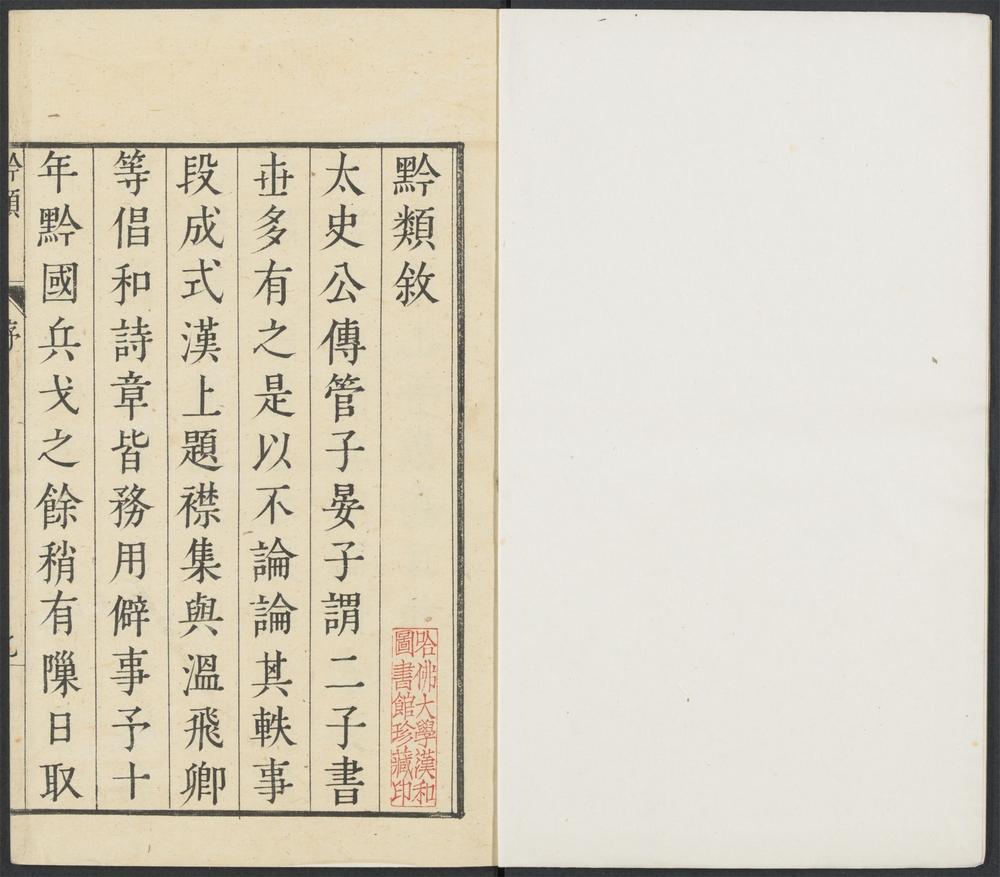 黔類敘
哈佛大學漢和
圖書館珍藏印
太史公傳管子晏子謂二子書
丗多有之是以不論論其軼事
段成式漢上題襟集與溫飛卿
等倡和詩章皆務用僻事予十
年黔國兵戈之餘稍有隟日取
黔類
序